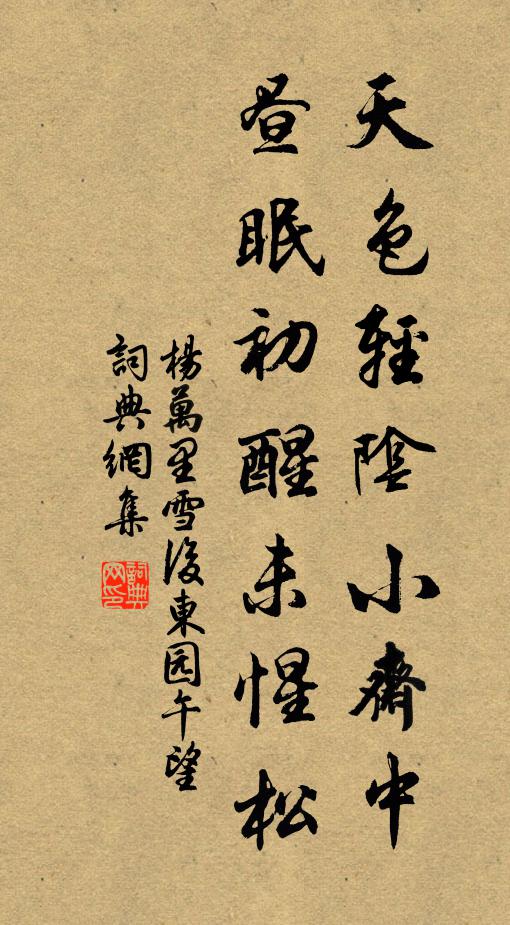 天色輕陰小齋中
晝眠初醒未惺松
楊萬里雪後東园午望
詞典網集
詞典网印